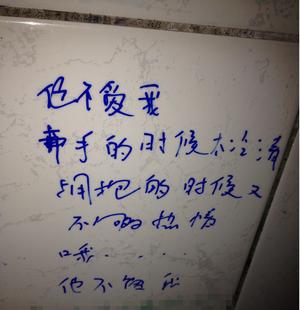 他不爱我
牵手的时候太冷清
拥抱的时候又
不够热情
哦....
他不爱我